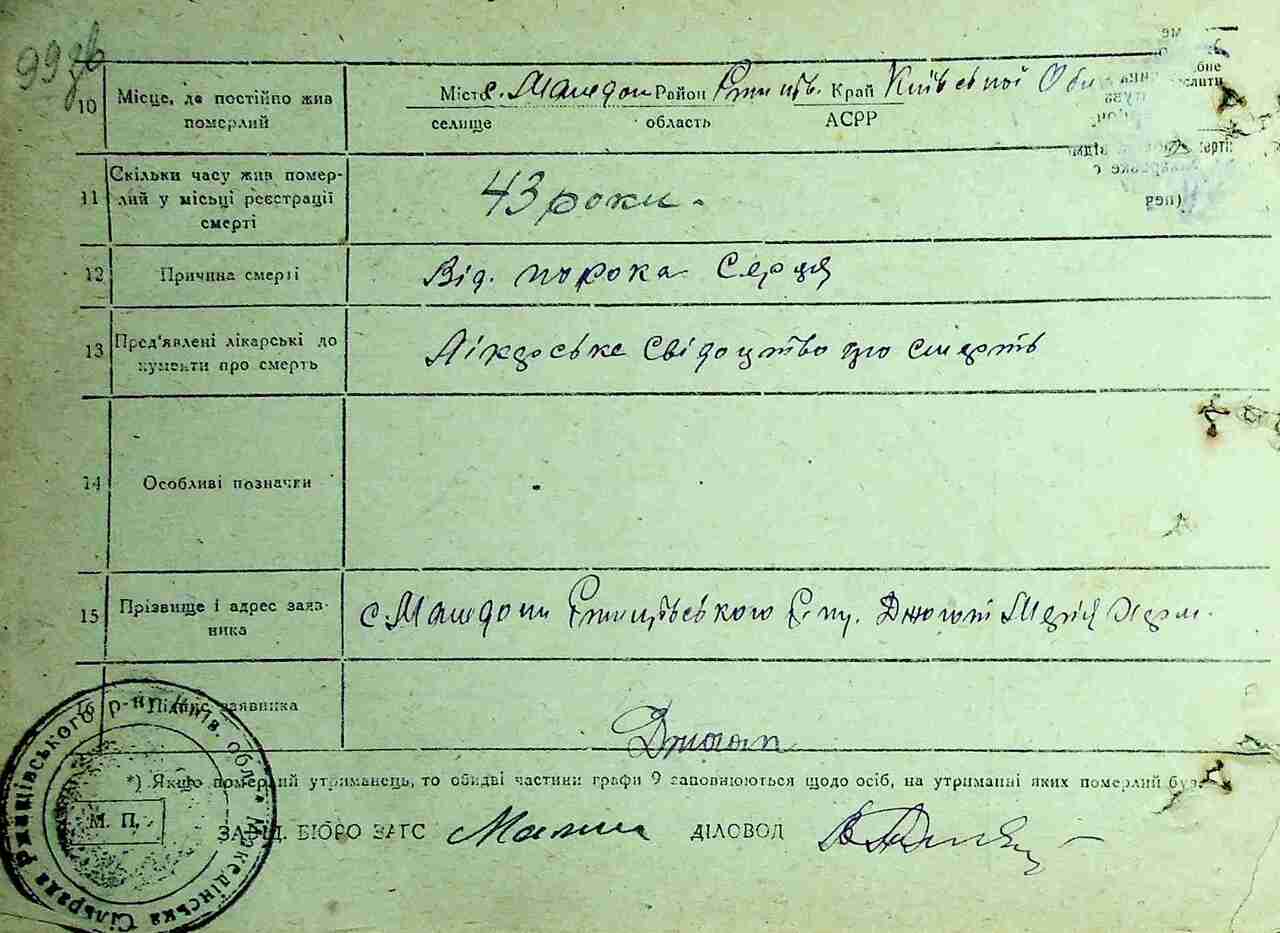 99 зв
10 Місце, де постійно жив померлий
Місто с. Македони Район Ржищів. Край Київської Обл
селище область АСРР
11 Скільки часу жив помер-
лий у місці реєстрації
смерті
43 роки.
12 Причина смерті
Від. порока Серця
13 Пред'явлені лікарські до
кументи про смерть
Лікарське Свідоцтво про смерть
14 Особливі позначки
15 Прізвище і адрес заяв-
ника
с. Македони Ржищівського
16 Підпис заявника
*) Якщо померлий утриманець, то обидві частини графи 9 заповнюються щодо осіб, на утриманні яких померлий був.
М. П.
ЗАВІД. БЮРО ЗАГС ДІЛОВОД
Македінська Сільрада Ржищівського р-ну Київ. обл.